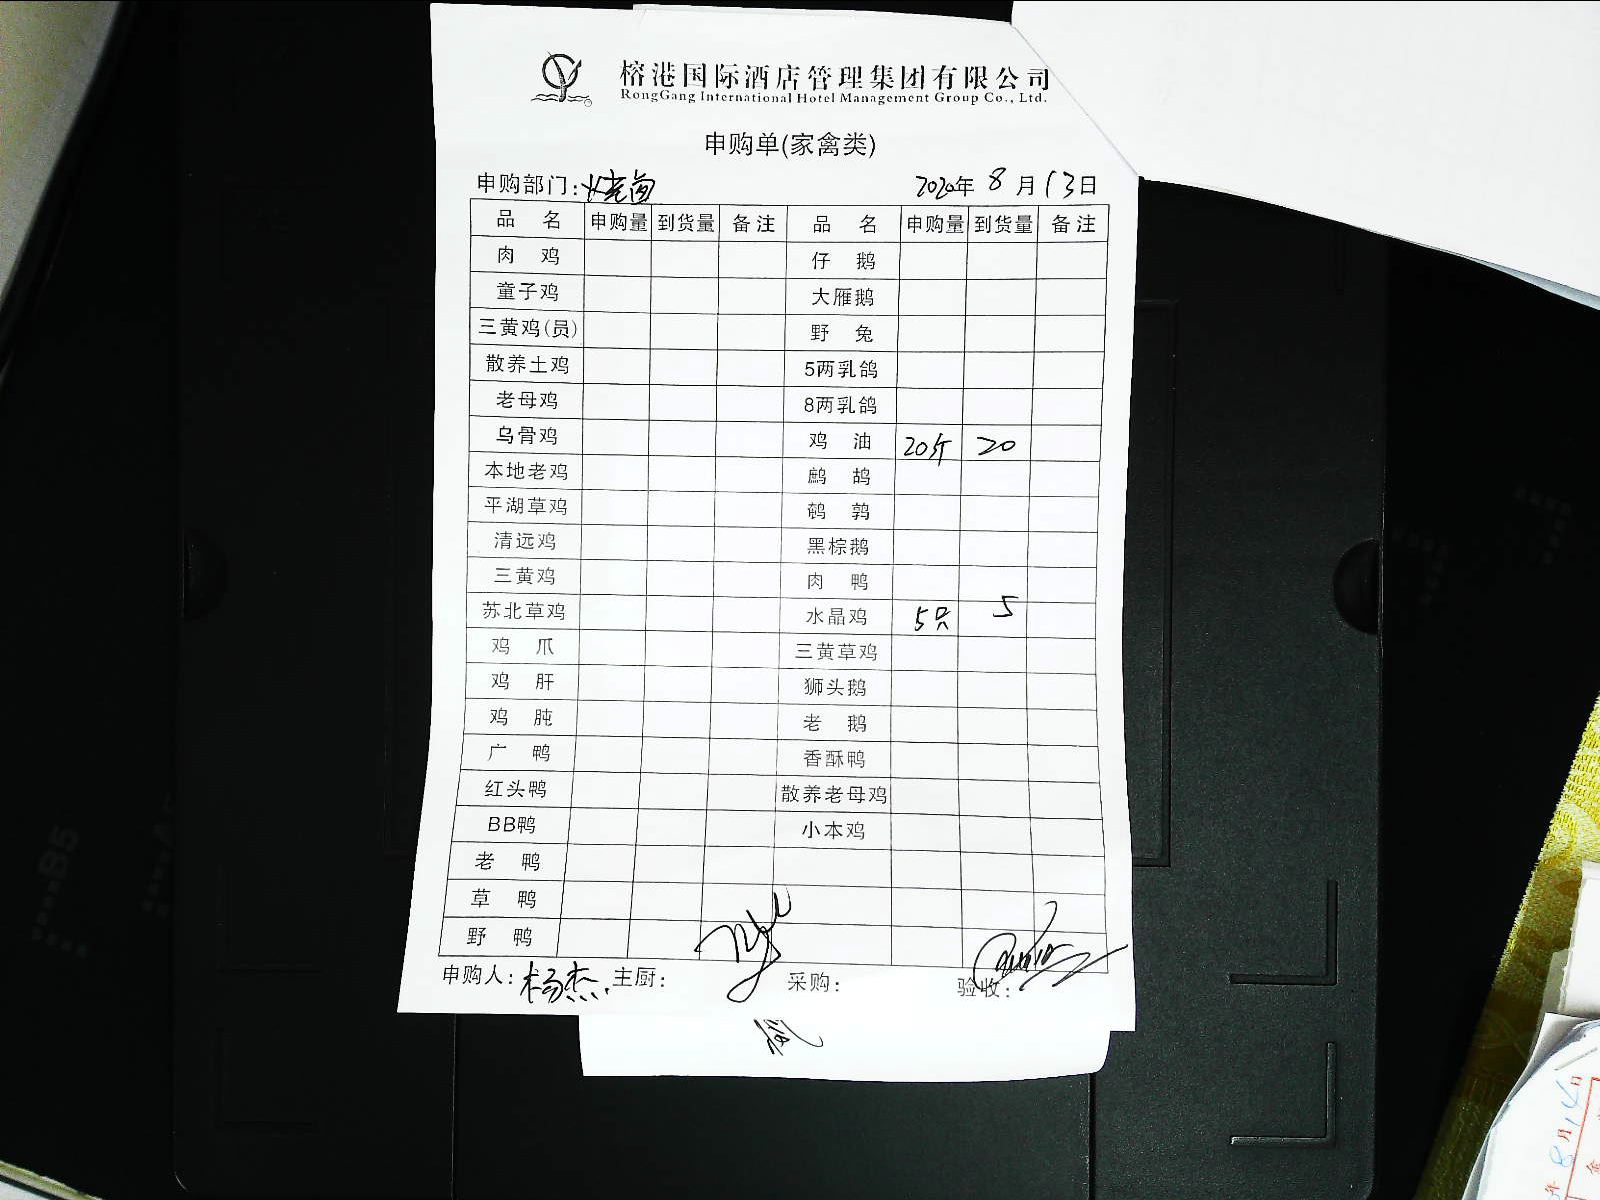 榕港国际酒店管理集团有限公司
RongGang International Hotel Management Group Co., Ltd.
申购单(家禽类)
申购部门:烧卤 2020年 8 月 13 日
品 名 申购量 到货量 备注 品 名 申购量 到货量 备注
肉 鸡 仔 鹅
童子鸡 大雁鹅
三黄鸡(员) 野 兔
散养土鸡 5两乳鸽
老母鸡 8两乳鸽
乌骨鸡 鸡 油 20斤 20
本地老鸡 鹧 鸪
平湖草鸡 鹌 鹑
清远鸡 黑棕鹅
三黄鸡 肉 鸭
苏北草鸡 水晶鸡 5只 5
鸡 爪 三黄草鸡
鸡 肝 狮头鹅
鸡 肫 老 鹅
广 鸭 香酥鸭
红头鸭 散养老母鸡
BB鸭 小本鸡
老 鸭
草 鸭
野 鸭
申购人:杨杰 主厨: 采购: 验收:
B5
8月14日